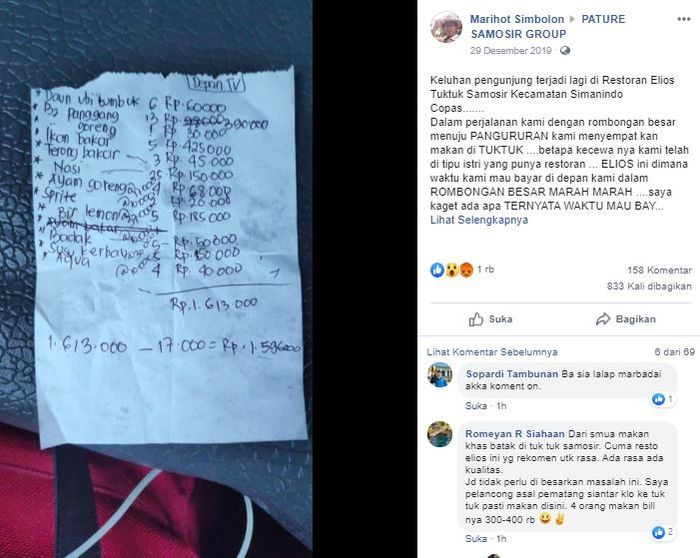 Depan TV
* Daun ubi tumbuk 6 Rp. 60000
* B2 Panggang 13 Rp. 390000
* goreng 1 Rp. 30 000
* Ikan bakar 5 Rp. 425000
* Terong bakar 3 Rp. 45 000
* Nasi 25 Rp. 150 000
* Ayam goreng 4 Rp. 68 000
* Sprite Rp. 20 000
* Bir lemon 5 Rp. 185 000
* Badak 5
* Susu kerbau Rp. 150 000
* Aqua 4 Rp. 40 000
Rp. 1.613 000
1.613.000 - 17.000 = Rp. 1.596000
Marihot Simbolon ▸ PATURE
SAMOSIR GROUP
29 Desember 2019 ·
Keluhan pengunjung terjadi lagi di Restoran Elios
Tuktuk Samosir Kecamatan Simanindo
Copas.......
Dalam perjalanan kami dengan rombongan besar
menuju PANGURURAN kami menyempat kan
makan di TUKTUK ....betapa kecewa nya kami telah
di tipu istri yang punya restoran ... ELIOS ini dimana
waktu kami mau bayar di depan kami dalam
ROMBONGAN BESAR MARAH MARAH ....saya
kaget ada apa TERNYATA WAKTU MAU BAY...
Lihat Selengkapnya
1 rb
158 Komentar
833 Kali dibagikan
Suka
Bagikan
Lihat Komentar Sebelumnya
6 dari 69
Sopardi Tambunan Ba sia lalap marbadai
akka koment on.
1
Suka · 1h
Romeyan R Siahaan Dari smua makan
khas batak di tuk tuk samosir. Cuma resto
elios ini yg rekomen utk rasa. Ada rasa ada
kualitas.
Jd tidak perlu di besarkan masalah ini. Saya
pelancong asal pematang siantar klo ke tuk
tuk pasti makan disini. 4 orang makan bill
nya 300-400 rb 😃✌
2
Suka · 1h